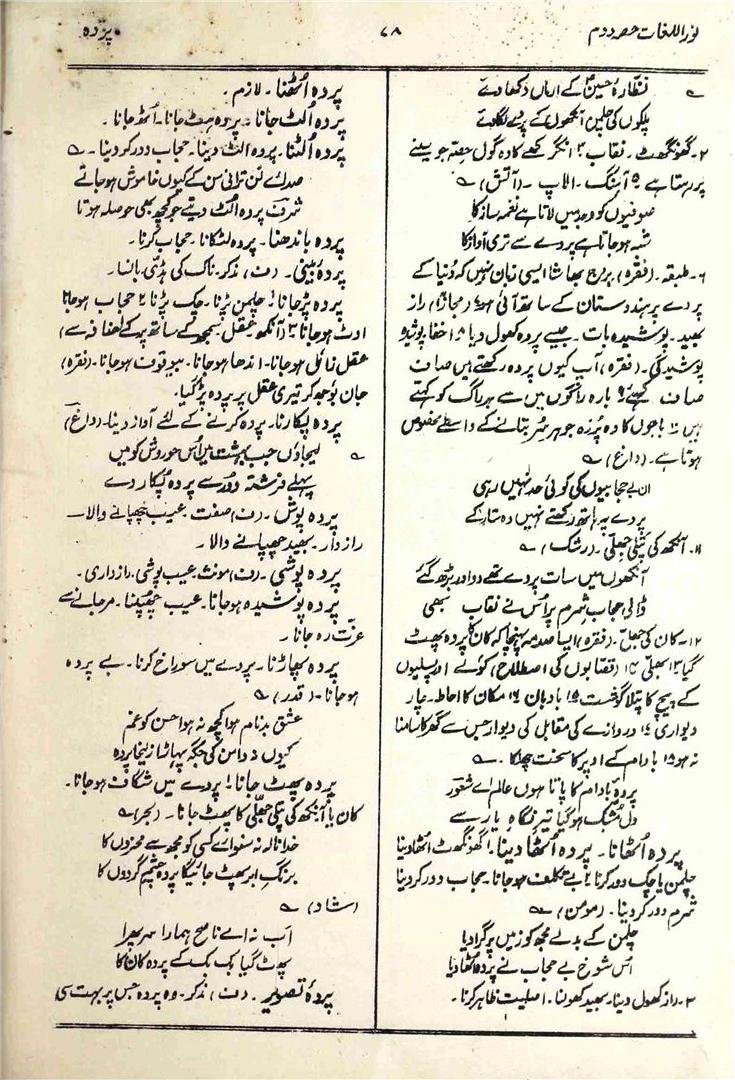 نور اللغات حصہ دوم
۷۸
پردہ
نظارۂ حسینؑ کے ارماں دکھادے
پلکوں کی چلمن آنکھوں کے پردے لگادے
۲۔ گھونگھٹ۔ نقاب ۳ انگرکھے کا وہ گول حصّہ جو سینے
پر رہتا ہے ۵ آہنگ۔ الاپ۔ (آتش) ؎
صوفیوں کو وجد میں لاتا ہے نغمہ ساز کا
شبہ ہو جاتا ہے پردے سے تری آواز کا
۶۔ طبقہ۔ (فقرہ) برج بھاشا ایسی زبان نہیں کہ دُنیا کے
پردے پر ہندوستان کے ساتھ آئی ہو ۷ (مجازاً) راز
بھید۔ پوشیدہ بات۔ جیسے پردہ کھول دیا ۸ اخفا۔ پوشیدہ
پوشیدگی۔ (فقرہ) آپ کیوں پردہ رکھتے ہیں صاف
صاف کہئے ۹ بارہ راگوں میں سے ہر راگ کو کہتے
ہیں ۱۰ باجوں کا وہ پُرزہ جو ہر سُر بتانے کے واسطے مخصوص
ہوتا ہے۔ (داغ) ؎
ان بے حجابیوں کی کوئی حد نہیں رہی
پردے پہ ہاتھ رکھتے نہیں وہ ستار کے
۱۱۔ آنکھ کی پتلی جھلّی۔ (رشک) ؎
آنکھوں میں سات پردے تھے دو اور بڑھ گئے
ڈالی حجاب شرم پر اُس نے نقاب بھی
۱۲۔ کان کی جھلّی۔ (فقرہ) ایسا صدمہ پہنچا کہ کان کا پردہ پھٹ
گیا ۱۳ جھلّی ۱۴ (قصّابوں کی اصطلاح) کولے اور پسلیوں
کے بیچ کا پتلا گوشت ۱۵ بادبان ۱۶ مکان کا احاطہ۔ چار
دیواری ۱۷ دروازے کی مقابل کی دیوار جس سے گھر کا سامنا
نہ ہو ۱۸ بادام کے اوپر کا سخت چھلکا۔ ؎
پردۂ بادام کا پاتا ہوں عالم اے شعور
دل مُشبّک ہو گیا تیرِ نگاہِ یار سے
پردہ اُٹھانا۔ پردہ اُٹھا دینا۔ ۱ گھونگھٹ اُٹھا دینا
چلمن یا چک دور کرنا یا بے تکلف ہو جانا۔ حجاب دور کر دینا
شرم دور کر دینا۔ (مومن) ؎
چلمن کے بدلے مجھ کو زمیں پر گرا دیا
اُس شوخ بے حجاب نے پردہ اُٹھا دیا
۳۔ راز کھول دینا۔ بھید کھولنا۔ اصلیت ظاہر کرنا۔
پردہ اُٹھنا۔ لازم۔
پردہ اُلٹ جانا۔ پردہ ہٹ جانا۔ اُٹھ جانا۔
پردہ اُلٹنا۔ پردہ الٹ دینا۔ حجاب دور کر دینا۔ ؎
صدائے لن ترانی سن کے کیوں خاموش ہو جاتے
شرف پردہ اُلٹ دیتے جو کچھ بھی حوصلہ ہوتا
پردہ باندھنا۔ پردہ لٹکانا۔ حجاب کرنا۔
پردہ بینی۔ (ف) مذکر۔ ناک کی ہڈی۔ بانسا۔
پردہ پڑ جانا ۱ چلمن پڑنا۔ چک پڑنا ۲ حجاب ہو جانا
اوٹ ہو جانا ۳ (آنکھ عقل۔ سمجھ کے ساتھ پر کے اضافہ سے)
عقل زائل ہو جانا۔ اندھا ہو جانا۔ بیوقوف ہو جانا۔ (فقرہ)
جان بوجھ کر تیری عقل پر پردہ پڑ گیا۔
پردہ پکارنا۔ پردہ کرنے کے لئے آواز دینا۔ (داغ)
؎ لیجاؤں جب بہشت میں اُس حور وش کو میں
پہلے فرشتہ دور سے پردہ پکار دے
پردہ پوش۔ (ف) صفت۔ عیب چھپانے والا۔
رازدار۔ بھید چھپانے والا۔
پردہ پوشی۔ (ف) مونث۔ عیب پوشی۔ رازداری۔
پردہ پوشیدہ ہو جانا۔ عیب چھُپنا۔ مر جانے سے
عزّت رہ جانا۔
پردہ پھاڑنا۔ پردے میں سوراخ کرنا۔ بے پردہ
ہو جانا۔ (قدر) ؎
عشق بدنام ہوا کچھ نہ ہوا حسن کو غم
کیوں نہ دامن کی جگہ پھاڑا زلیخا پردہ
پردہ پھٹ جانا ۱ پردے میں شگاف ہو جانا۔
کان یا آنکھ کی پتلی جھلّی کا پھٹ جانا۔ (بحر) ؎
خدا نالہ نہ سنوائے کسی کو مجھ سے محزوں کا
برنگ ابر پھٹ جائیگا پردہ چشم گردوں کا
(شاد) ؎
اب نہ اے ناصح ہمارا سر پھرا
پھٹ گیا بک بک کے پردہ کان کا
پردۂ تصویر۔ (ف) مذکر۔ وہ پردہ جس پر بہت سی